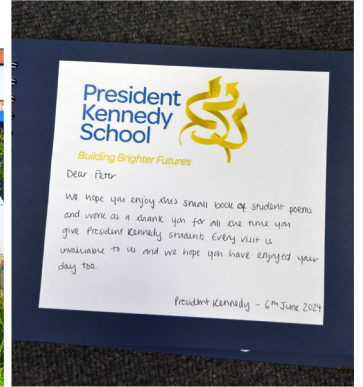 President
Kennedy
School
Building Brighter Futures
Dear Peter
We hope you enjoy this small book of student poems
and work as a thank you for all the time you
give President Kennedy students. Every visit is
invaluable to us and we hope you have enjoyed your
day too.
President Kennedy - 6th June 2024